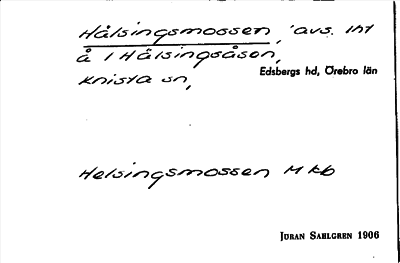 Hälsingsmossen, avs. int
å 1 Hälsingsåsen,
Knista sn, Edsbergs hd, Örebro län
Helsingsmossen M kb
JÖRAN SAHLGREN 1906